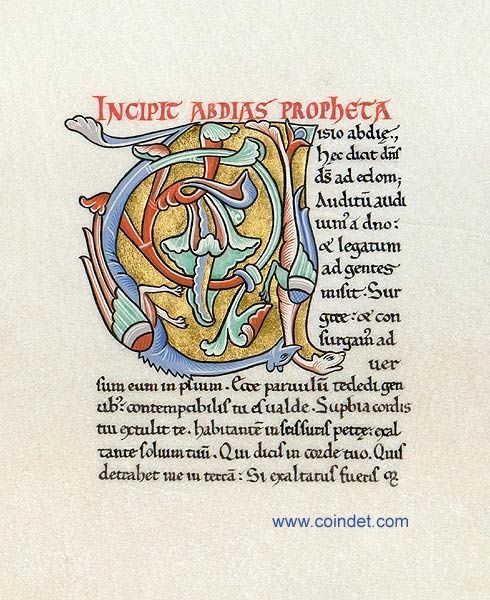 INCIPIT ABDIAS PROPHETA
isio abdię.,
hec dicit dn̄s
ds̄ ad edom;
Auditū audi
uim᷒ a dno:
& legatum
ad gentes
misit. Sur
gite: & con
surgam᷒ ad
uer
sum eum in p̄lium. Ecce paruulū te dedi gen
tib᷒: contemptibilis tu es ualde. Supbia cordis
tui extulit te. habitantē in scissuris petrę: exal
tante solium tuū. Qui dicis in corde tuo. Quis
detrahet me in terrā: Si exaltatus fueris
www.coindet.com